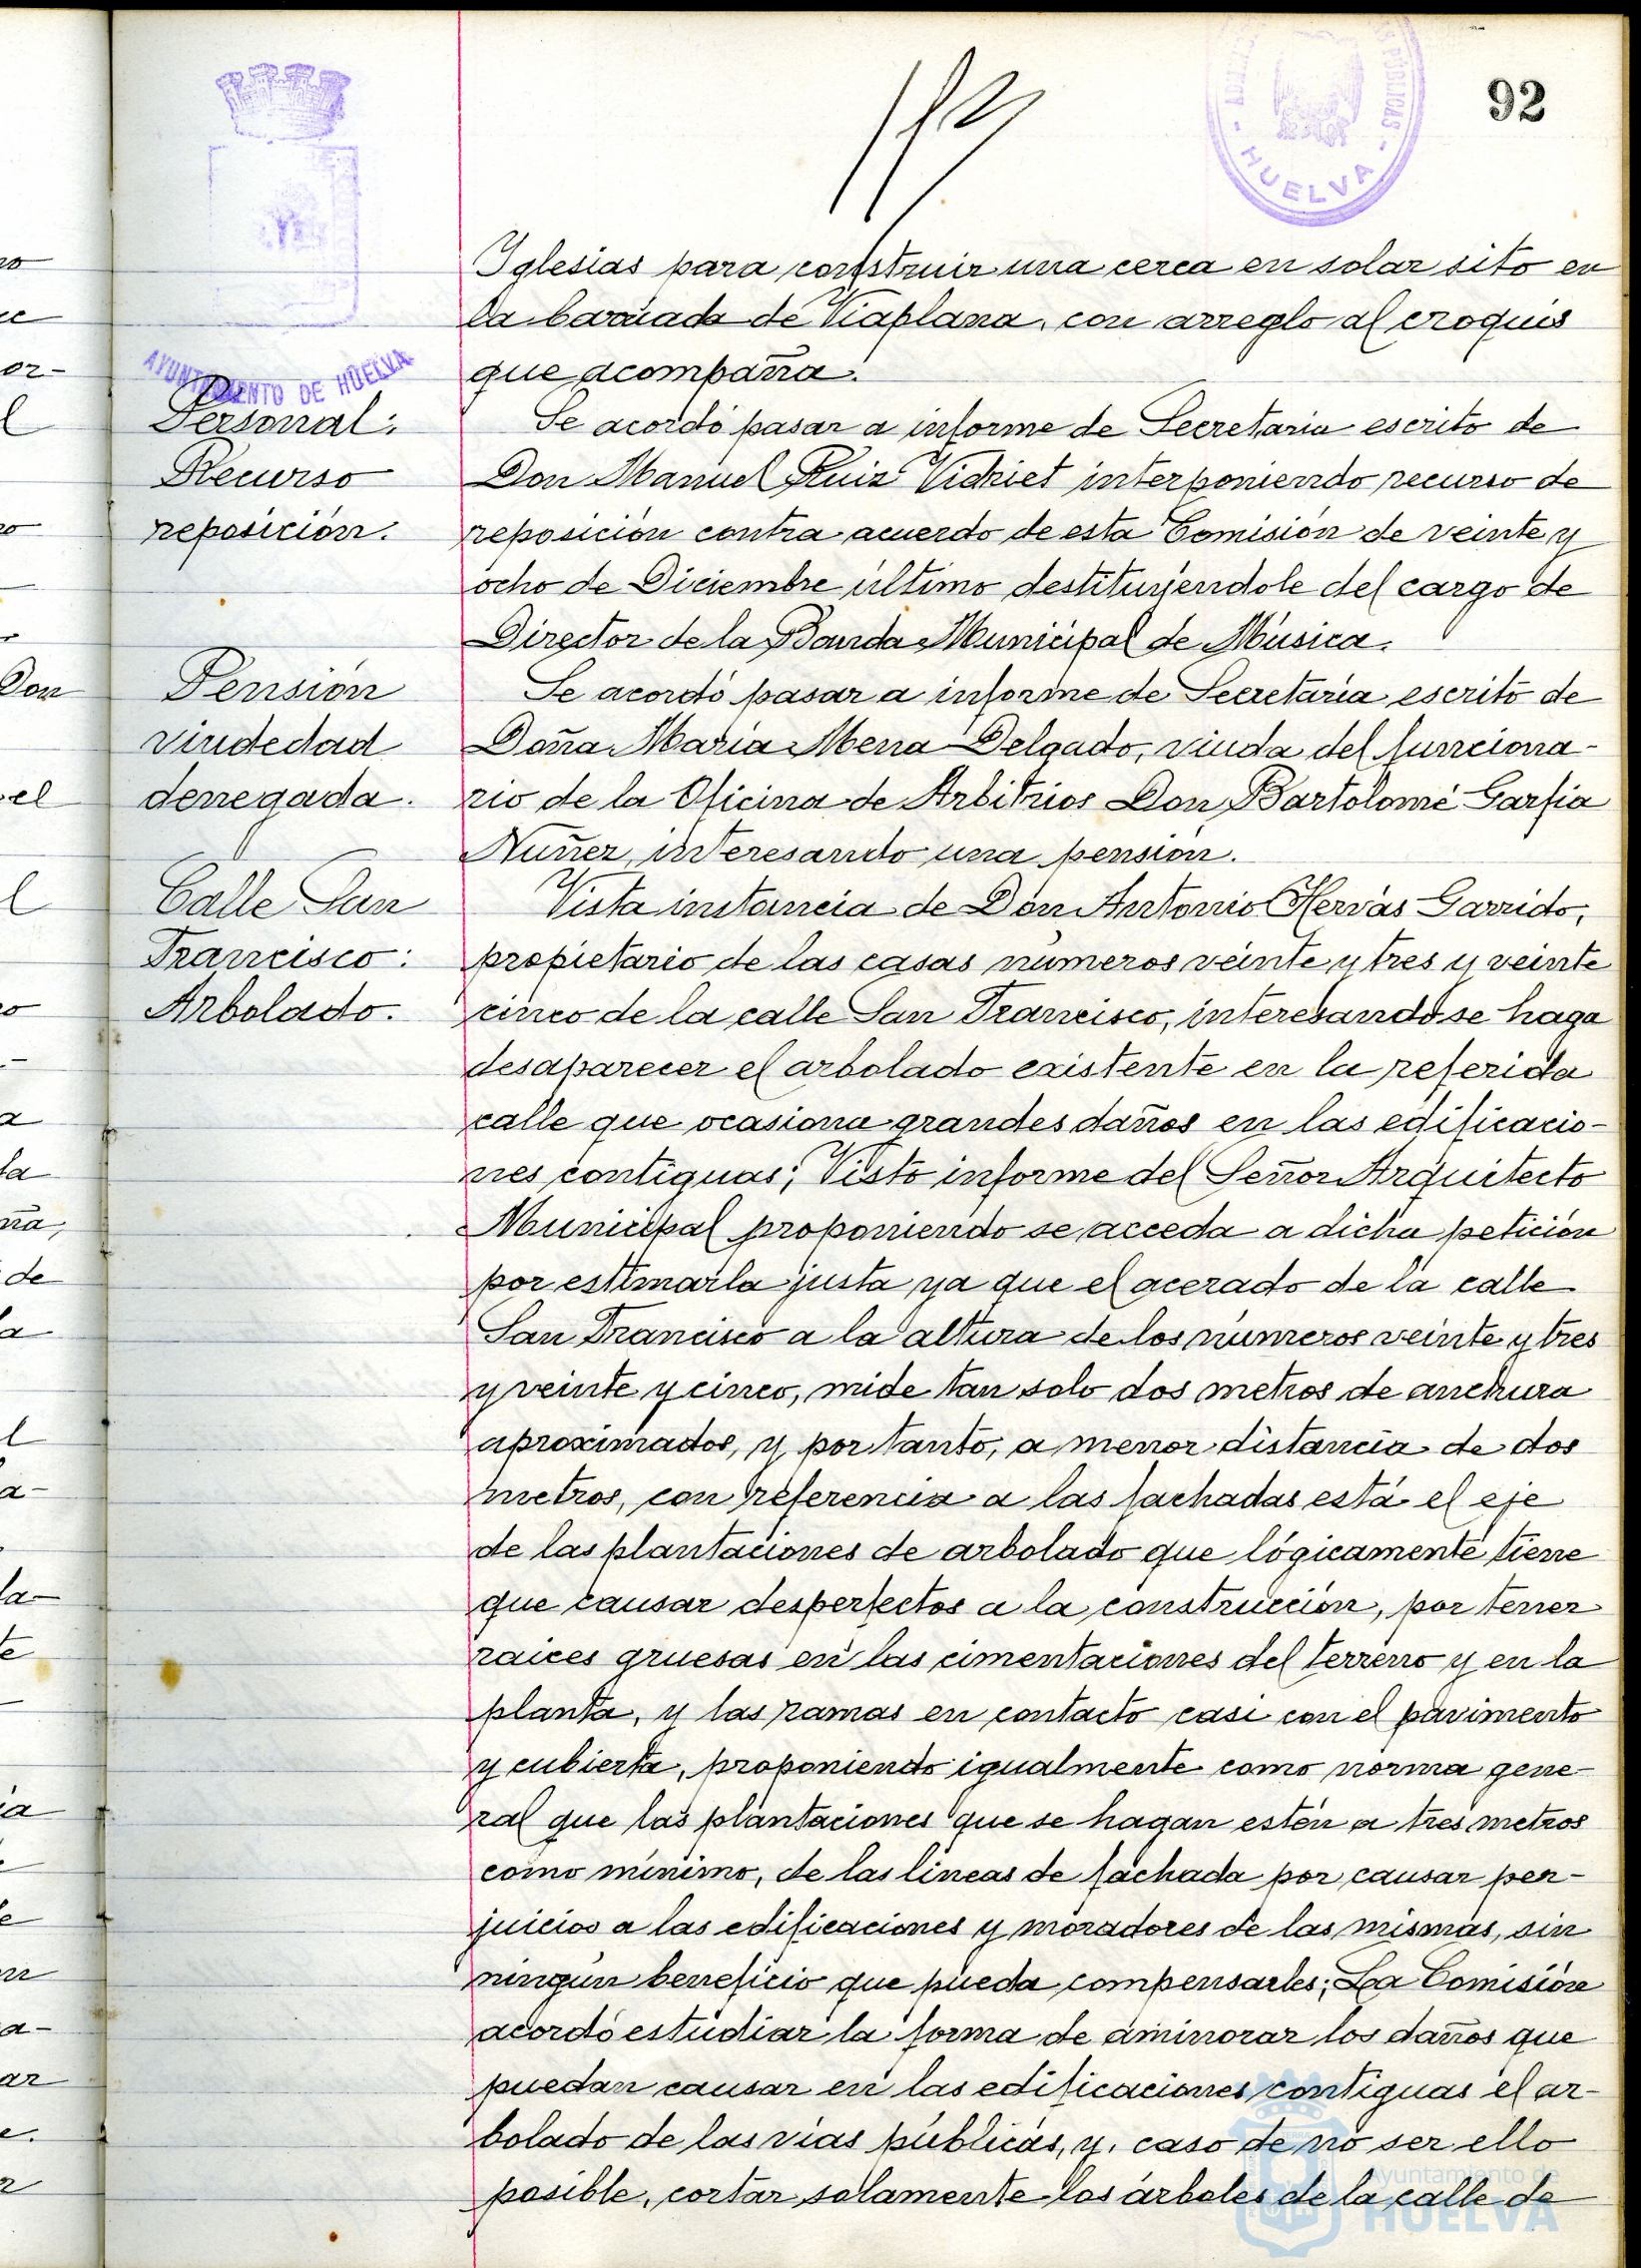 92
HUELVA
AYUNTAMIENTO DE HUELVA
Iglesias para construir una cerca en solar sito en
la barriada de Viaplana, con arreglo al croquis
que acompaña.
Personal:
Recurso
reposición.
Se acordó pasar a informe de Secretaria escrito de
Don Manuel Ruiz Vidriet interponiendo recurso de
reposición contra acuerdo de esta Comisión de veinte y
ocho de Diciembre último destituyendole del cargo de
Director de la Banda Municipal de Música.
Pensión
viudedad
denegada.
Se acordó pasar a informe de Secretaría escrito de
Doña María Mena Delgado, viuda del funciona-
rio de la Oficina de Arbitrios Don Bartolomé Garfia
Nuñez, interesando una pensión.
Calle San
Francisco:
Arbolado.
Vista instancia de Don Antonio Hervás Garrido,
propietario de las casas números veinte y tres y veinte
cinco de la calle San Francisco, interesando se haga
desaparecer el arbolado existente en la referida
calle que ocasiona grandes daños en las edificacio-
nes contiguas; Visto informe del Señor Arquitecto
Municipal proponiendo se acceda a dicha petición
por estimarla justa ya que el acerado de la calle
San Francisco a la altura de los números veinte y tres
y veinte y cinco, mide tan solo dos metros de anchura
aproximados, y por tanto, a menor distancia de dos
metros, con referencia a las fachadas está el eje
de las plantaciones de arbolado que lógicamente tiene
que causar desperfectos a la construcción, por tener
raices gruesas en las cimentaciones del terreno y en la
planta, y las ramas en contacto casi con el pavimento
y cubierta, proponiendo igualmente como norma gene-
ral que las plantaciones que se hagan estén a tres metros
como mínimo, de las líneas de fachada por causar per-
juicios a las edificaciones y moradores de las mismas, sin
ningún beneficio que pueda compensarles; La Comisión
acordó estudiar la forma de aminorar los daños que
puedan causar en las edificaciones contiguas el ar-
bolado de las vías públicas, y, caso de no ser ello
posible, cortar solamente los árboles de la calle de
Ayuntamiento de
HUELVA